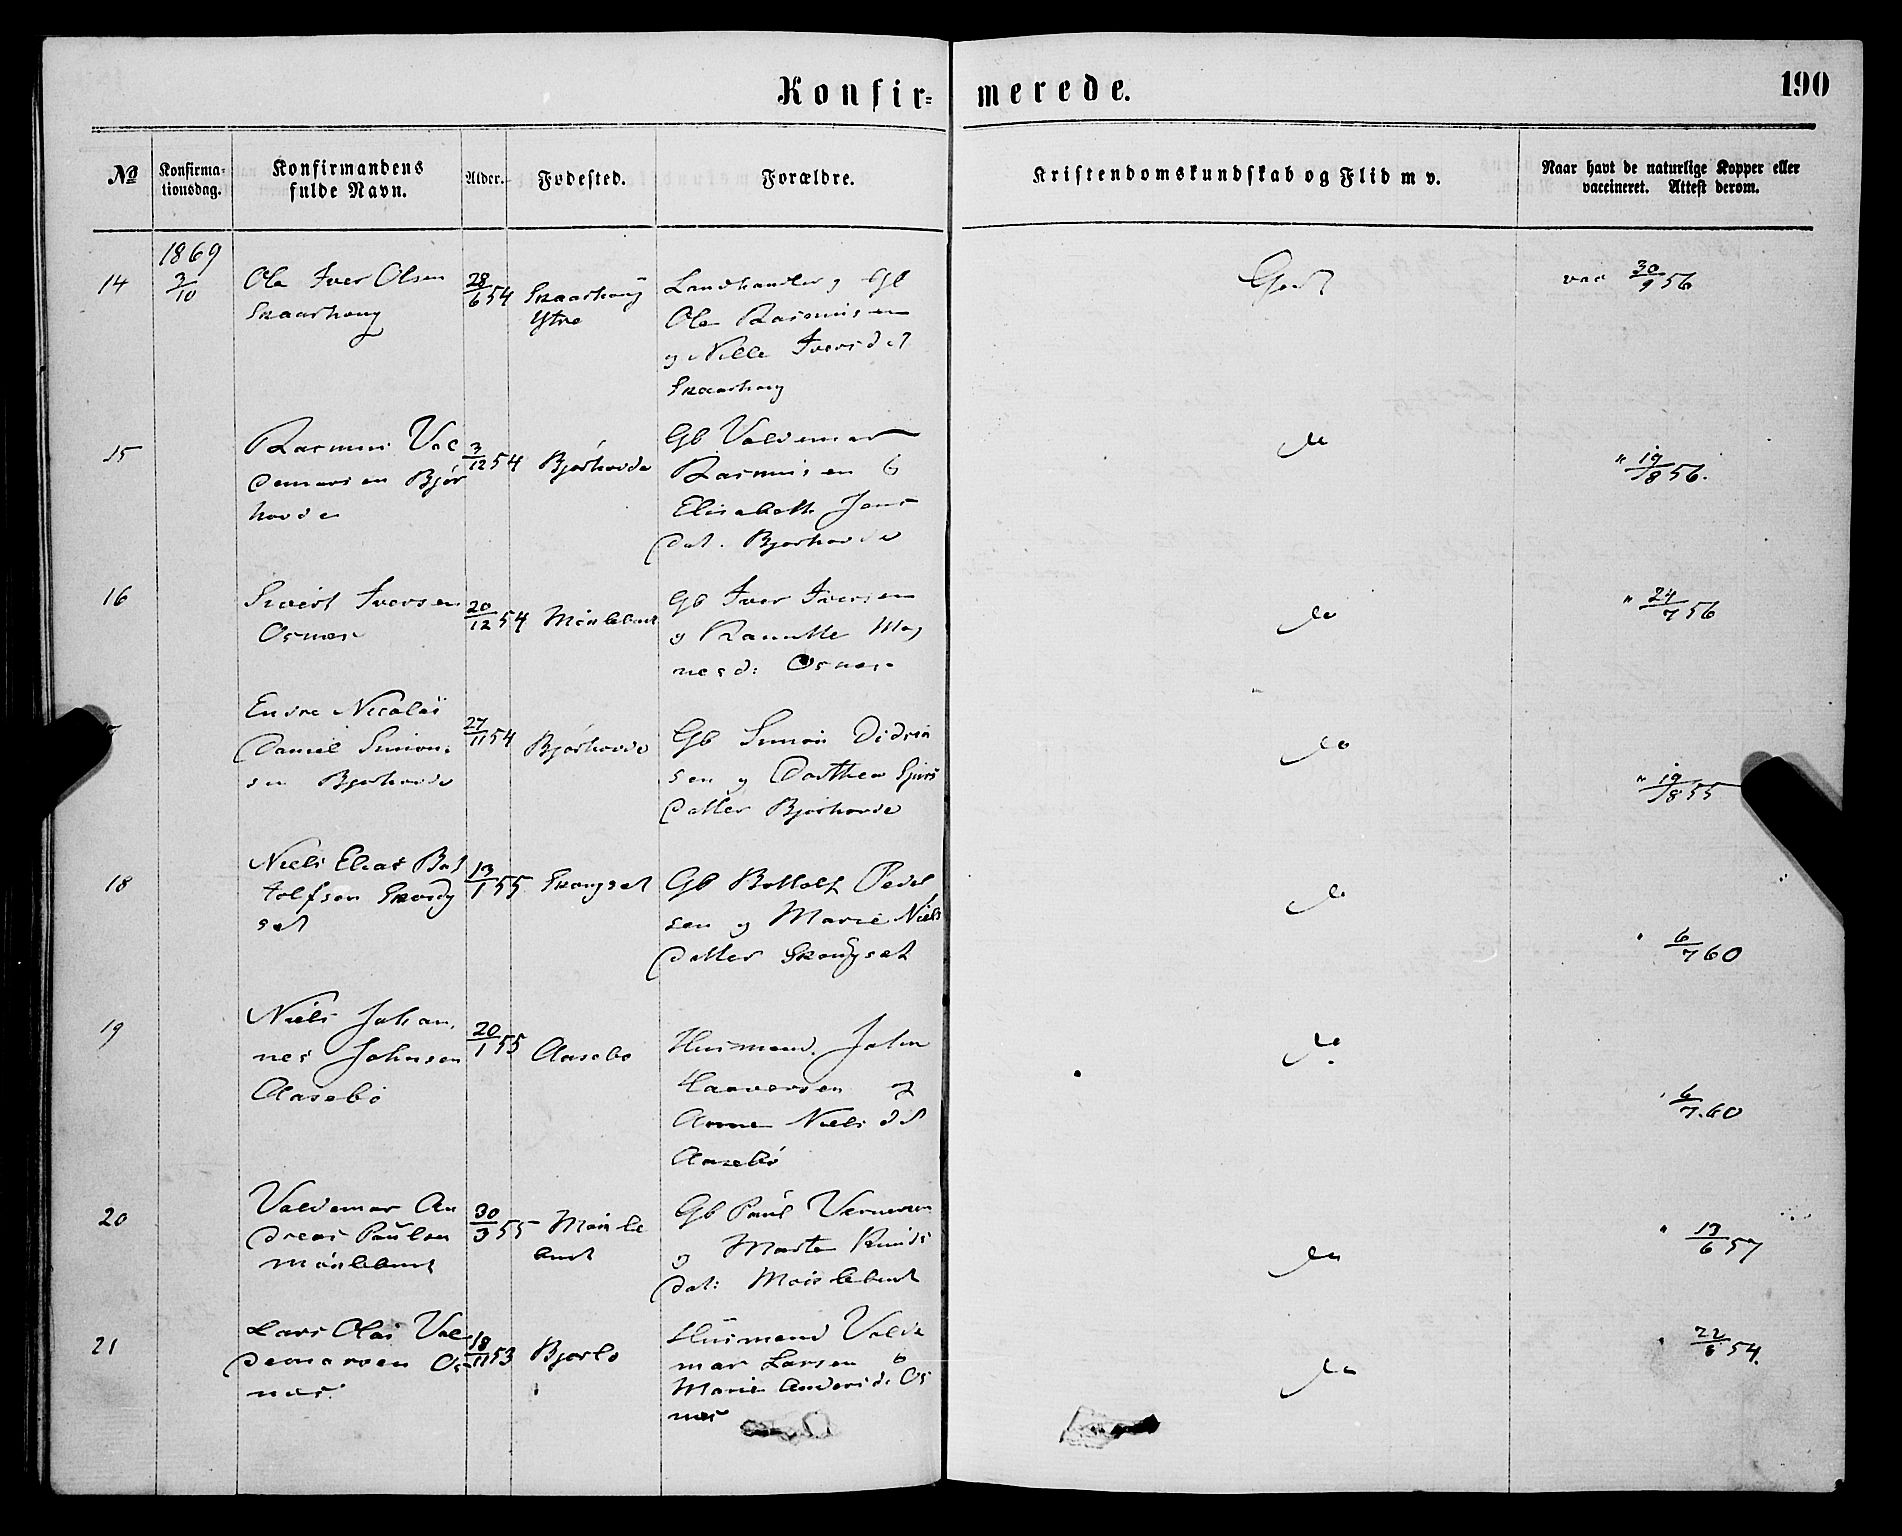 Konfir=
merede.
190
№
Konfirma-
tionsdag.
Konfirmandens
fulde Navn.
Alder.
Fødested.
Forældre.
Kristendomskundskab og Flid m v.
Naar havt de naturlige Kopper eller
vaccineret. Attest derom.
1869
14
3/10
Ole Iver Olsen
Skaarhoug
28/6 54
Skaarhoug
Ytre
Landhandler, Gb
Ole Rasmusen
og Nille Iversd t
Skaarhoug
Godt
vac 30/9 56
15
Rasmus Val
demarsen Bjør
hovde
3/12 54
Bjørhovde
Gb Valdemar
Rasmusen &
Elisabeth Jens
dat. Bjørhovde
do
" 19/8 56.
16
Sivert Iversen
Osnes
20/12 54
Gb Iver Iversen
og Ranette Mag
nesd: Osnes
do
" 24/7 56
Endre Nicolai
Daniel Simon
sen Bjørhovde
27/11 54
Bjørhovde
Gb Simon Didrik
sen og Dorthea
datter Bjørhovde
do
" 19/8 55
18
Niels Elias Bot
tolfsen Skoug
set
13/1 55
Skougset
Gb Bottolf Peder
sen og Marie Niels
datter Skougset
do
" 6/7 60
19
Niels Johan
nes Johnsen
Aasebø
20/1 55
Aasebø
Husmand. John
og
Anne Niels dt
Aasebø
do
" 6/7.60
20
Valdemar An
dreas Paulsen
30/3 55
Gb Paul
og Marte Knuds
dat:
do
" 13/6 57
21
Lars Olai Val
demarsen Os
nes.
18/11 53
Husmand Valde
mar Larsen &
Marie Andersd. Os
nes
do
" 22/6 54.